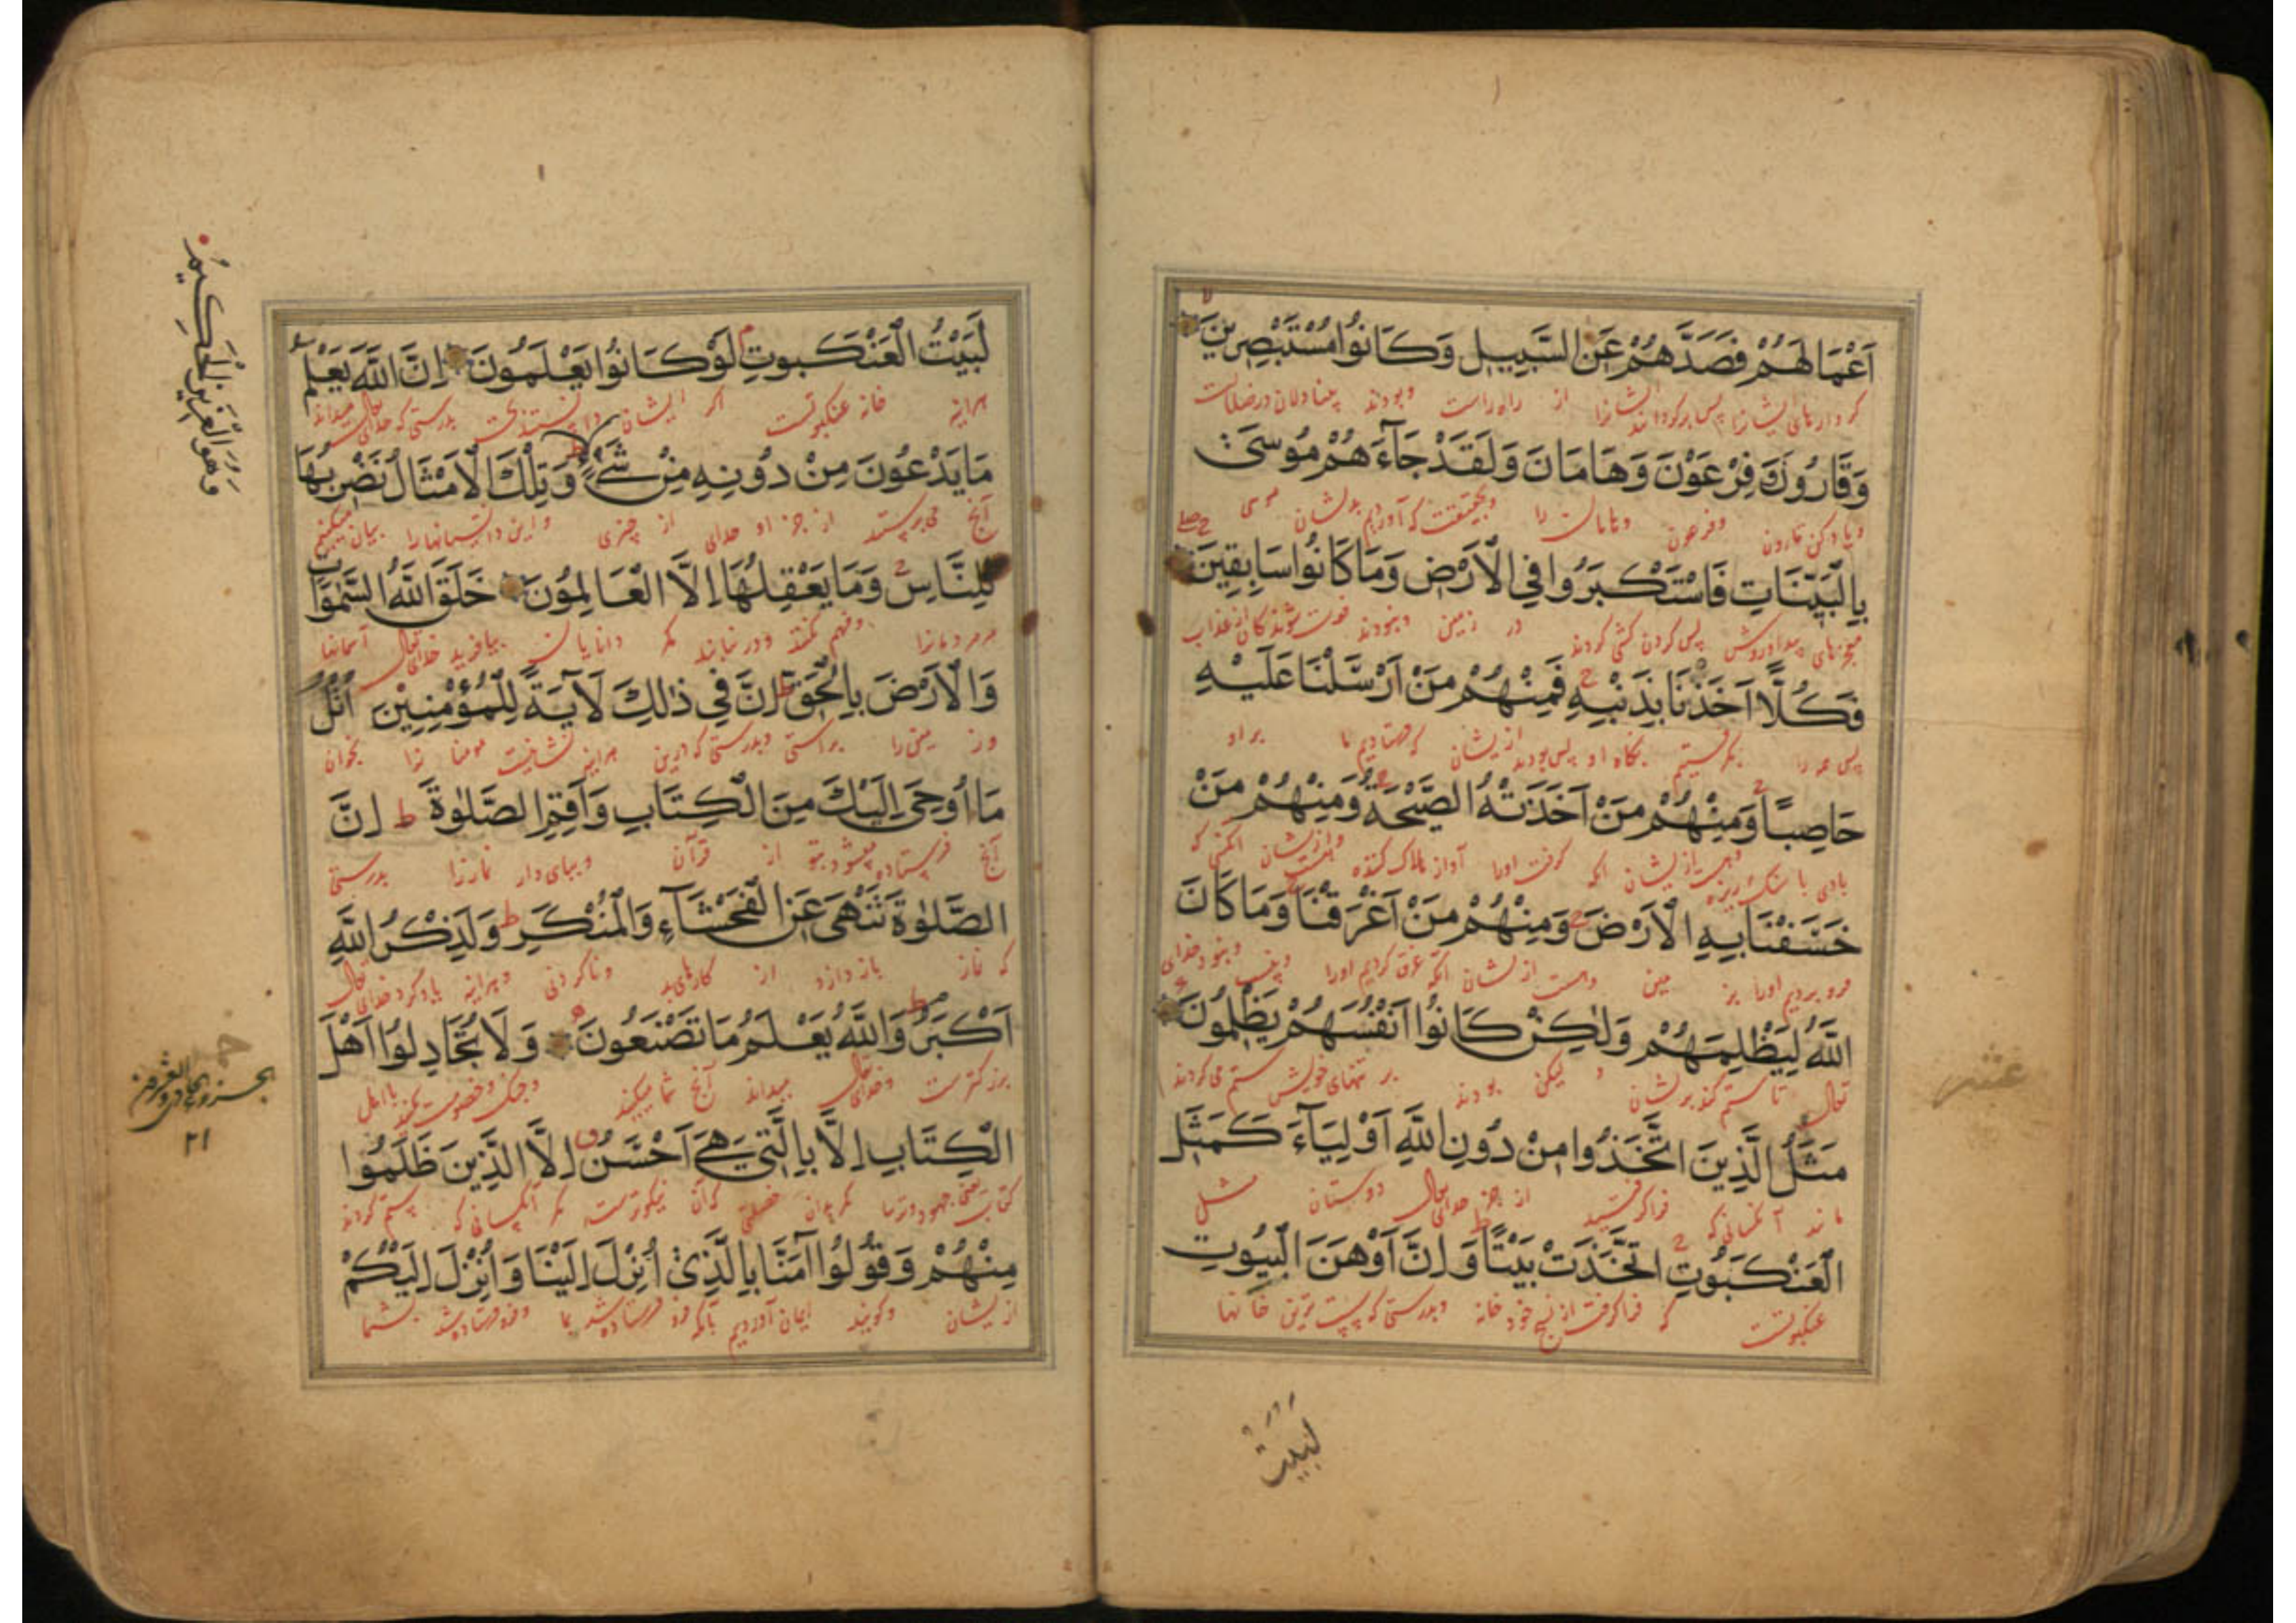 اَعْمَالَهُمْ فَصَدَّهُمْ عَنِ السَّبِيلِ وَكَانُوا مُسْتَبْصِرِينَ
کردارهای ایشانرا پس برگردانید ایشانرا از راه راست و بودند بینادلان در ضلالت
وَقَارُونَ وَفِرْعَوْنَ وَهَامَانَ وَلَقَدْ جَآءَهُمْ مُوسَىٰ
و یاد کن قارون و فرعون و هامان را و بحقیقت که آورد بدیشان موسی
بِالْبَيِّنَاتِ فَاسْتَكْبَرُوا فِي الْاَرْضِ وَمَا كَانُوا سَابِقِينَ
پس گردن کشی کردند در زمین و نبودند از عذاب
فَكُلًّا اَخَذْنَا بِذَنْبِهِ فَمِنْهُمْ مَنْ اَرْسَلْنَا عَلَيْهِ
پس همه را بگرفتیم بگناه او پس بود از یشان که فرستادیم ما بر او
حَاصِبًا وَمِنْهُمْ مَنْ اَخَذَتْهُ الصَّيْحَةُ وَمِنْهُمْ مَنْ
بادی با سنگ ریزه و هست از یشان آنکه گرفت اورا آواز هلاک کننده و از یشان
خَسَفْنَا بِهِ الْاَرْضَ وَمِنْهُمْ مَنْ اَغْرَقْنَا وَمَا كَانَ
فرو بردیم اورا بز مین و هست از یشان آنکه غرق کردیم اورا و نبود خدای
اللّٰهُ لِيَظْلِمَهُمْ وَلٰكِنْ كَانُوا اَنْفُسَهُمْ يَظْلِمُونَ
تعالی تا ستم کند بر یشان و لیکن بودند بر تنهای خویش ستم می کردند
مَثَلُ الَّذِينَ اتَّخَذُوا مِنْ دُونِ اللّٰهِ اَوْلِيَآءَ كَمَثَلِ
مانند آنکسانی که فرا گرفتند از جز خدای تعالی دوستان مثل
الْعَنْكَبُوتِ اتَّخَذَتْ بَيْتًا وَاِنَّ اَوْهَنَ الْبُيُوتِ
عنکبوتست که فرا گرفت از خود خانه و بدرستی که سست ترین خانها
لَبَيْتُ
لَبَيْتُ الْعَنْكَبُوتِ لَوْ كَانُوا يَعْلَمُونَ اِنَّ اللّٰهَ يَعْلَمُ
هراینه خانه عنکبوتست اگر ایشان دانستندی بدرستی که خدای تعالی میداند
مَا يَدْعُونَ مِنْ دُونِهِ مِنْ شَيْءٍ وَتِلْكَ الْاَمْثَالُ نَضْرِبُهَا
آنچ می پرستند از جز او خدای از چیزی و این داستانهارا بیان میکنیم
لِلنَّاسِ وَمَا يَعْقِلُهَا اِلَّا الْعَالِمُونَ خَلَقَ اللّٰهُ السَّمٰوَاتِ
مر مردمانرا و فهم نکنند و در نیابند مگر دانایان بیافرید خدای تعالی آسمانها
وَالْاَرْضَ بِالْحَقِّ اِنَّ فِي ذٰلِكَ لَآيَةً لِلْمُؤْمِنِينَ اُتْلُ
و ز مین را براستی و بدرستی که درین هراینه نشانیست مومنا نرا بخوان
مَا اُوحِيَ اِلَيْكَ مِنَ الْكِتَابِ وَاَقِمِ الصَّلٰوةَ اِنَّ
آنچ فرستاده میشود بتو از قرآن و بپای دار نماز را بدرستی
الصَّلٰوةَ تَنْهٰى عَنِ الْفَحْشَآءِ وَالْمُنْكَرِ وَلَذِكْرُ اللّٰهِ
که نماز باز دارد از کارهای بد و ناکردنی و هراینه یاد کرد خدای تعالی
اَكْبَرُ وَاللّٰهُ يَعْلَمُ مَا تَصْنَعُونَ وَلَا تُجَادِلُوا اَهْلَ
بزرکترست و خدای تعالی میداند آنچ شما میکنید و جنک و خصومت مکنید با اهل
الْكِتَابِ اِلَّا بِالَّتِي هِيَ اَحْسَنُ اِلَّا الَّذِينَ ظَلَمُوا
کتاب یعنی جهود و ترسا مکر بدان خصلتی که آن نیکوترست مکر آنکسانی که ستم کردند
مِنْهُمْ وَقُولُوا آمَنَّا بِالَّذِي اُنْزِلَ اِلَيْنَا وَاُنْزِلَ اِلَيْكُمْ
از یشان و کویید ایمان آوردیم بآنکه فرو فرستاده شد بما و فرو فرستاده شد بشما
وَهُوَ الْعَزِيزُ الْحَكِيمُ
الجزو الحادی والعشرون من
٢١
عشر